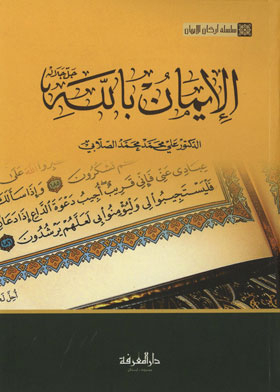 سلسلة أركان الإيمان
الإيمان بالله جل جلاله
الدكتور علي محمد محمد الصلابي
تشكرون
عبادي عني فإني قريب أجيب دعوة الداع إذا دعان
فليستجيبوا لي وليؤمنوا بي لعلهم يرشدون
أحل
دار المعرفة